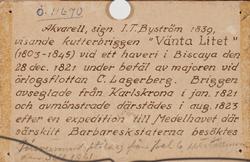 Ö. 11670
Akvarell, sign. I.T. Byström 1839,
visande kutterbriggen "Vänta Litet"
(1803-1845) vid ett haveri i Biscaya den
28 dec. 1821 under befäl av majoren vid
örlogsflottan C. Lagerberg. Briggen
avseglade från Karlskrona i jan. 1821
och avmönstrade därstädes i aug. 1823
efter en expedition till Medelhavet där
särskilt Barbareskstaterna besöktes